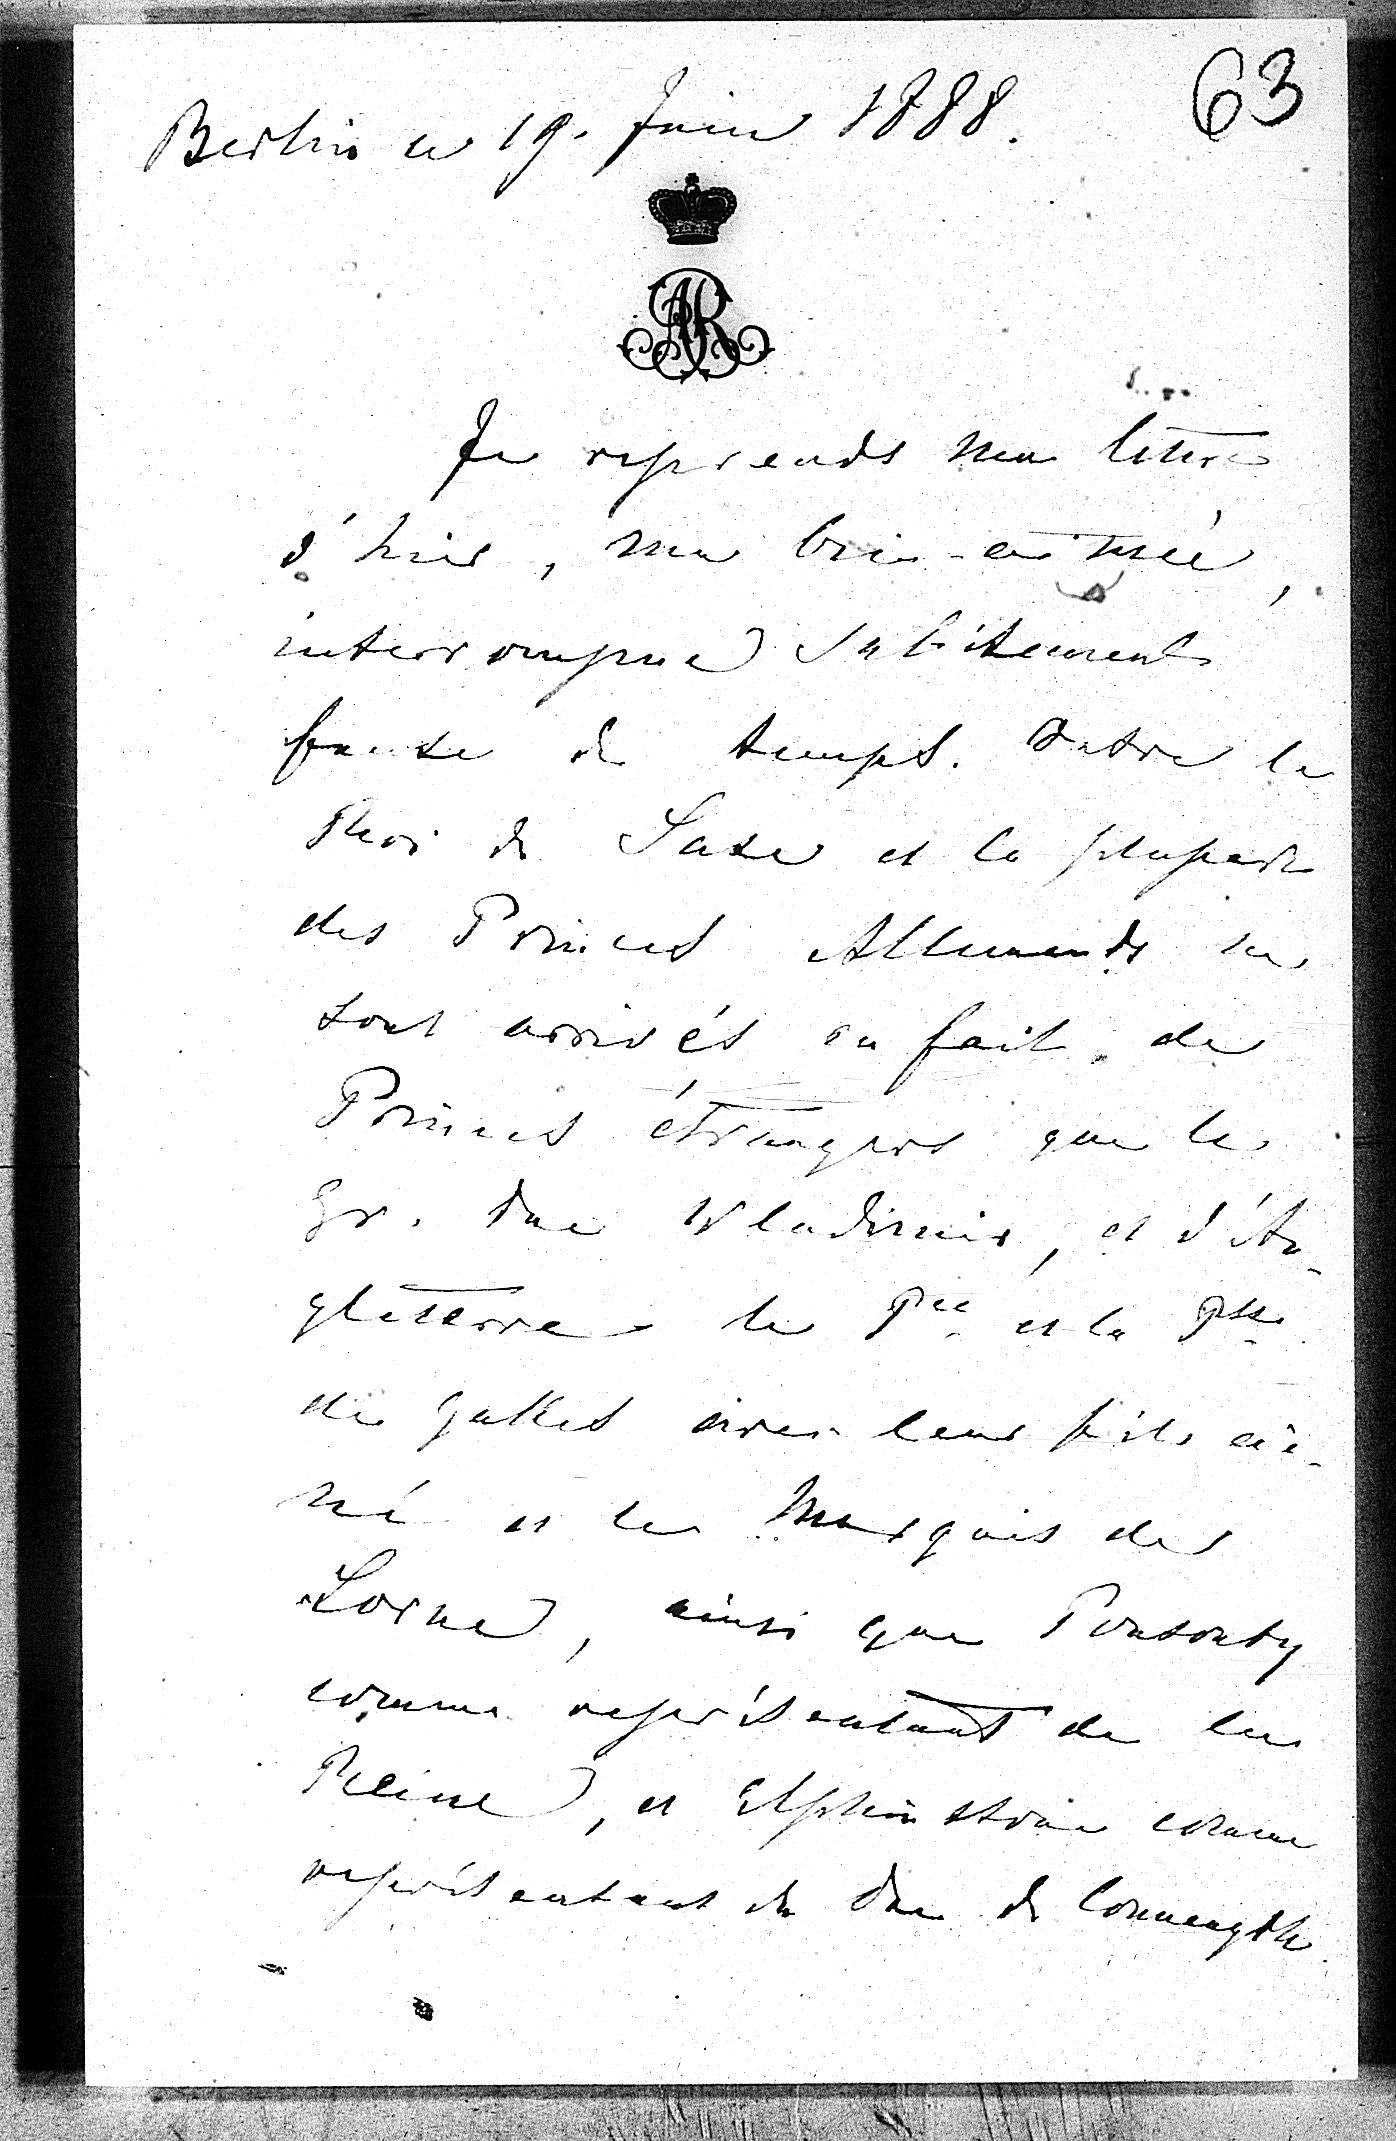 63
Berlin ce 19. Juin 1888.
AR
Je reprends ma lettre
d'hier, ma bien-aimée,
interrompue subitement
faute de temps. Outre le
Roi de Saxe et la plupart
des Princes Allemands ne
sont arrivés en fait de
Princes étrangers que le
Gr. Duc Wladimir, et d'An-
gleterre le Pce et la Psse
de Galles avec leur fils aî-
né et le Marquis de
Lorne, ainsi que Ponsonby
comme représentant de la
Reine, et Elphinstone comme
représentant du Duc de Connaugth